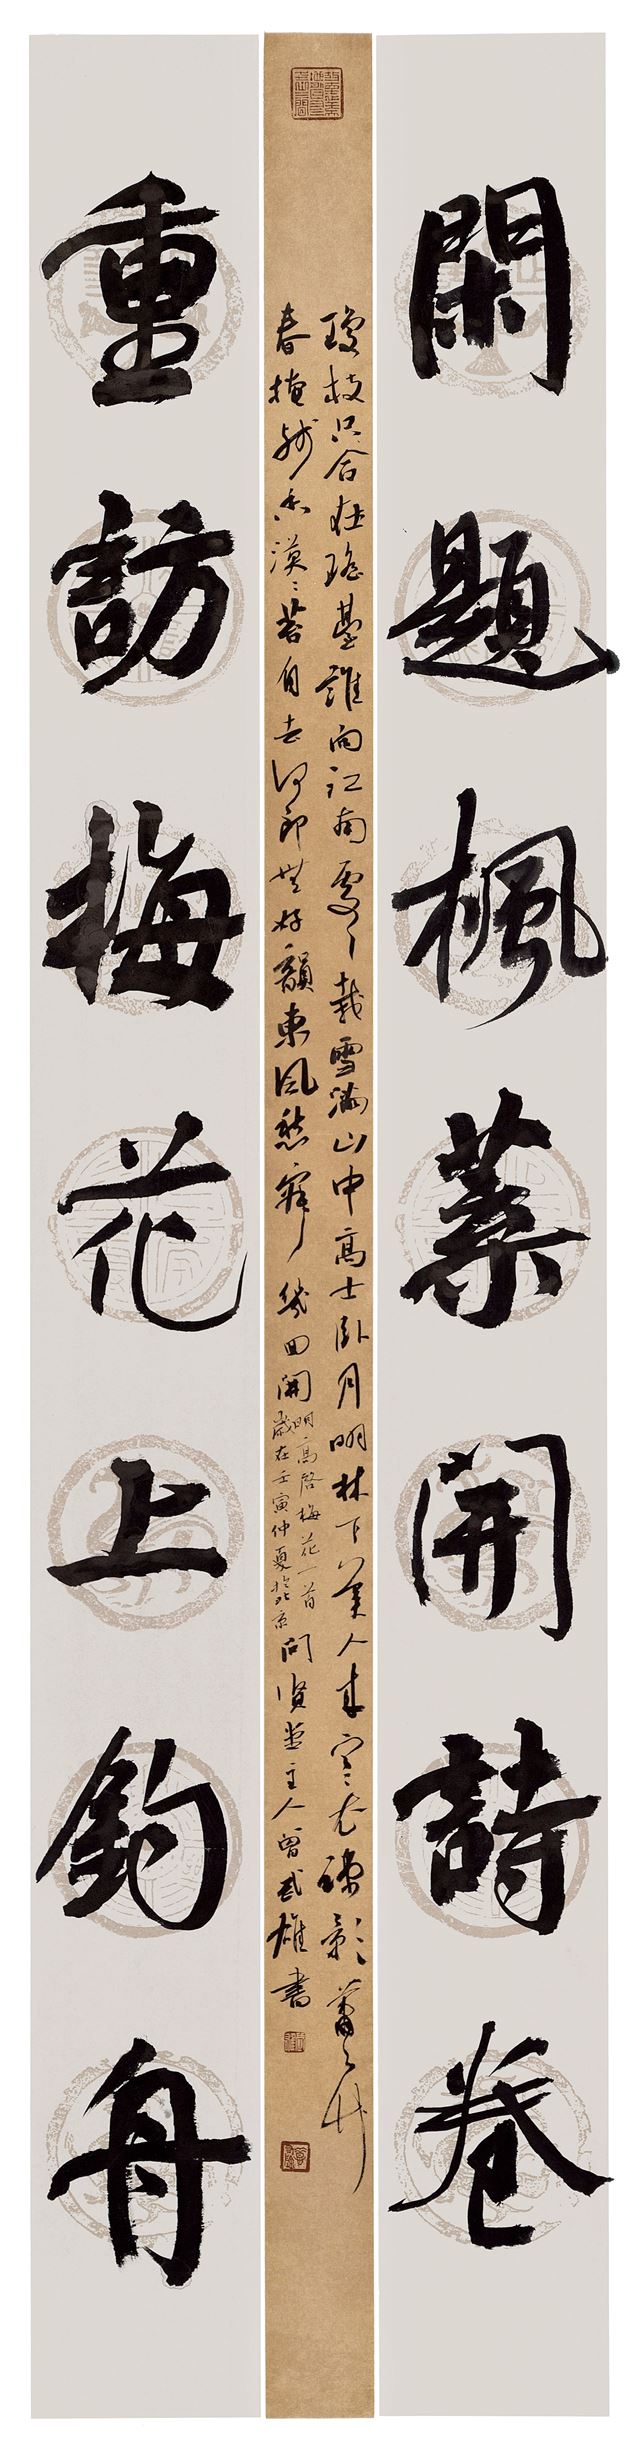 閑題楓葉開詩卷
瓊枝只合在瑤臺誰向江南處々栽雪滿山中高士臥月明林下美人來寒依疎影蕭々竹
春掩殘香漠々苔自去何郎無好韻東風愁寂幾回開
明高啓梅花一首
歲在壬寅仲夏於北京
問賢堂主人曾武雄書
重訪梅花上釣舟